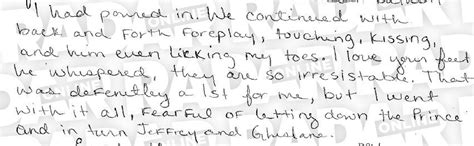 I had poured in. We continued with
back and forth foreplay, touching, kissing,
and him even licking my toes. I love your feet
he whispered, they are so irresistable. That
was defenetley a 1st for me, but I went
with it all, fearful of letting down the Prince
and in turn Jeffrey and Ghislane.